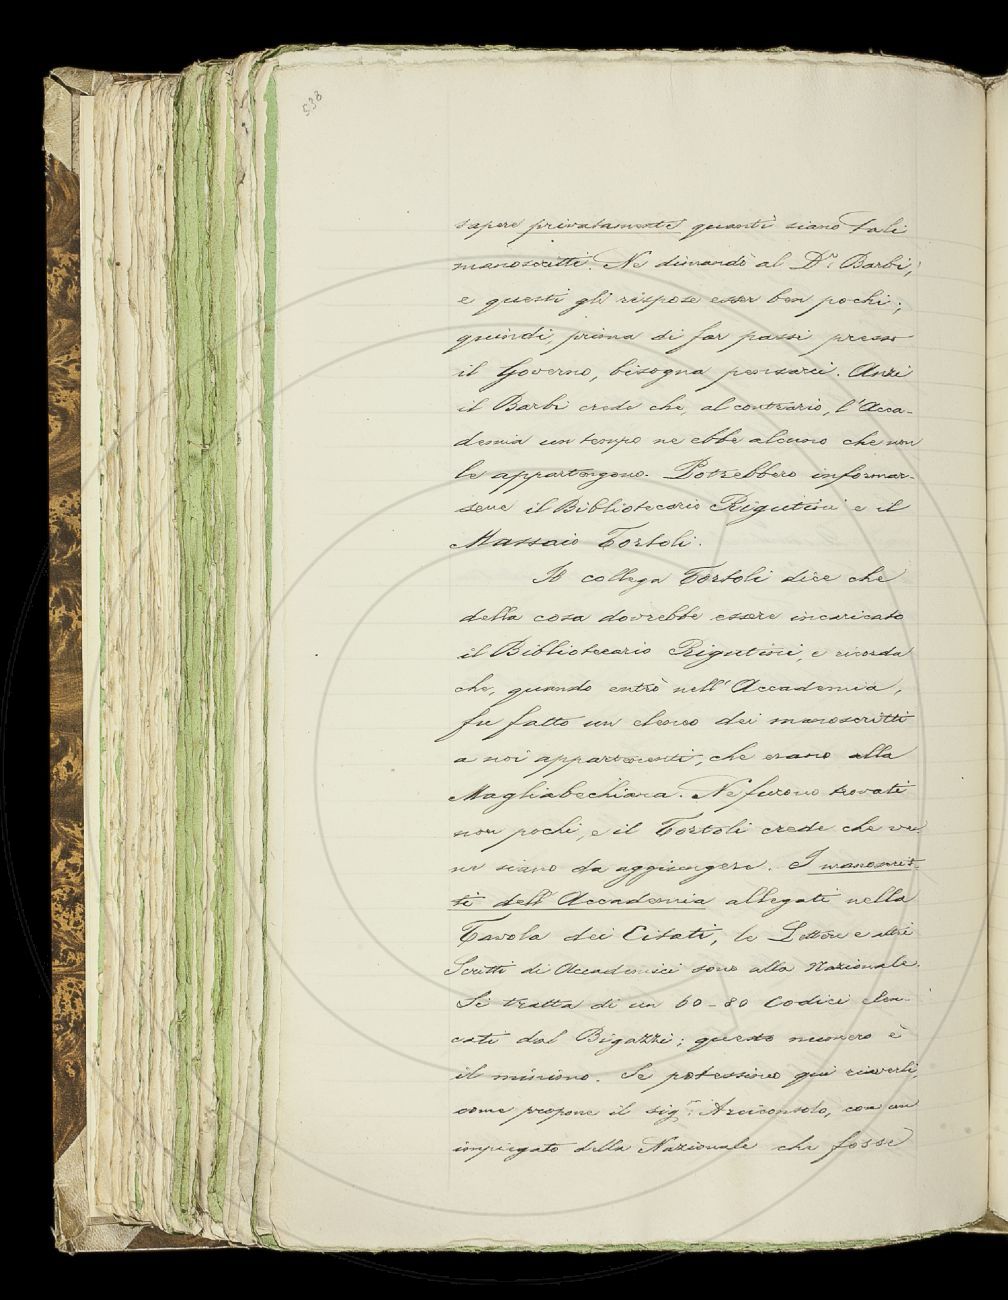 538
sapere privatamente quanti siano tali
manoscritti. Ne dimandò al D.r Barbi,
e questi gli rispose esser ben pochi;
quindi, prima di far passi presso
il Governo, bisogna pensarci. Anzi
il Barbi crede che, al contrario, l'Acca-
demia un tempo ne ebbe alcuno che non
le appartengono. Potrebbero informar-
sene il Bibliotecario Rigutini e il
Massaio Tortoli.
Il collega Tortoli dice che
della cosa dovrebbe essere incaricato
il Bibliotecario Rigutini, e ricorda
che, quando entrò nell'Accademia,
fu fatto un elenco dei manoscritti
a noi appartenenti, che erano alla
Magliabechiana. Ne furono trovati
non pochi, e il Tortoli crede che ve
ne siano da aggiungere. I manoscrit-
ti dell'Accademia allegati nella
Tavola dei Citati, le Lettere e altri
Scritti di Accademici sono alla Nazionale.
Si tratta di un 60-80 Codici elen-
cati dal Bigazzi; questo numero è
il minimo. Se potessimo qui riaverli,
come propone il sig.r Arciconsolo, con un
impiegato della Nazionale che fosse